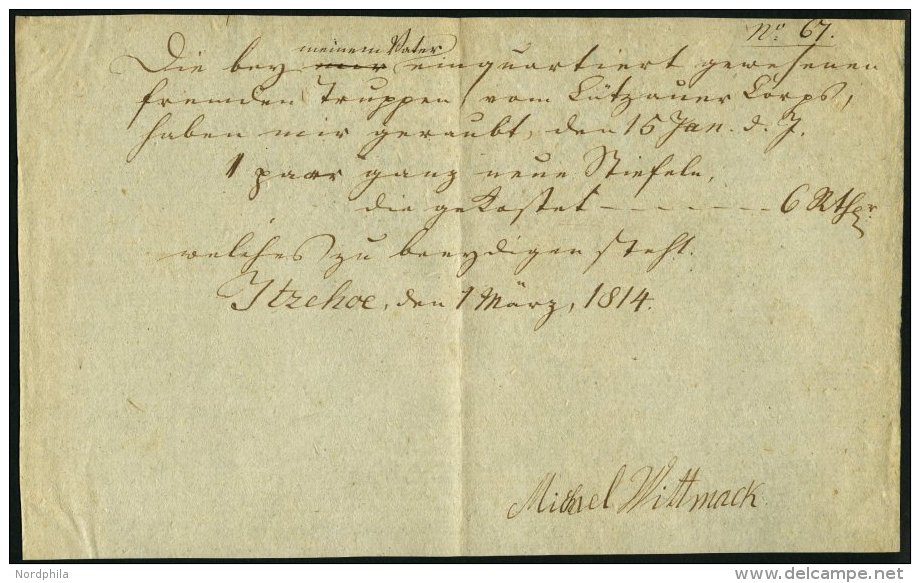 No. 67.
meinem Vater
Die bey mir einquartiert gewesenen
fremden Truppen, vom Lützauer Corps,
haben mir geraubt, den 15 Jan. d. J.
1 paar ganz neue Stiefeln,
die gekostet - - - - - - 6 Rthlr
welches zu beeydigen steht.
Itzehoe, den 1 März, 1814.
Michael Wittmack.
Nordphila
delcampe.net